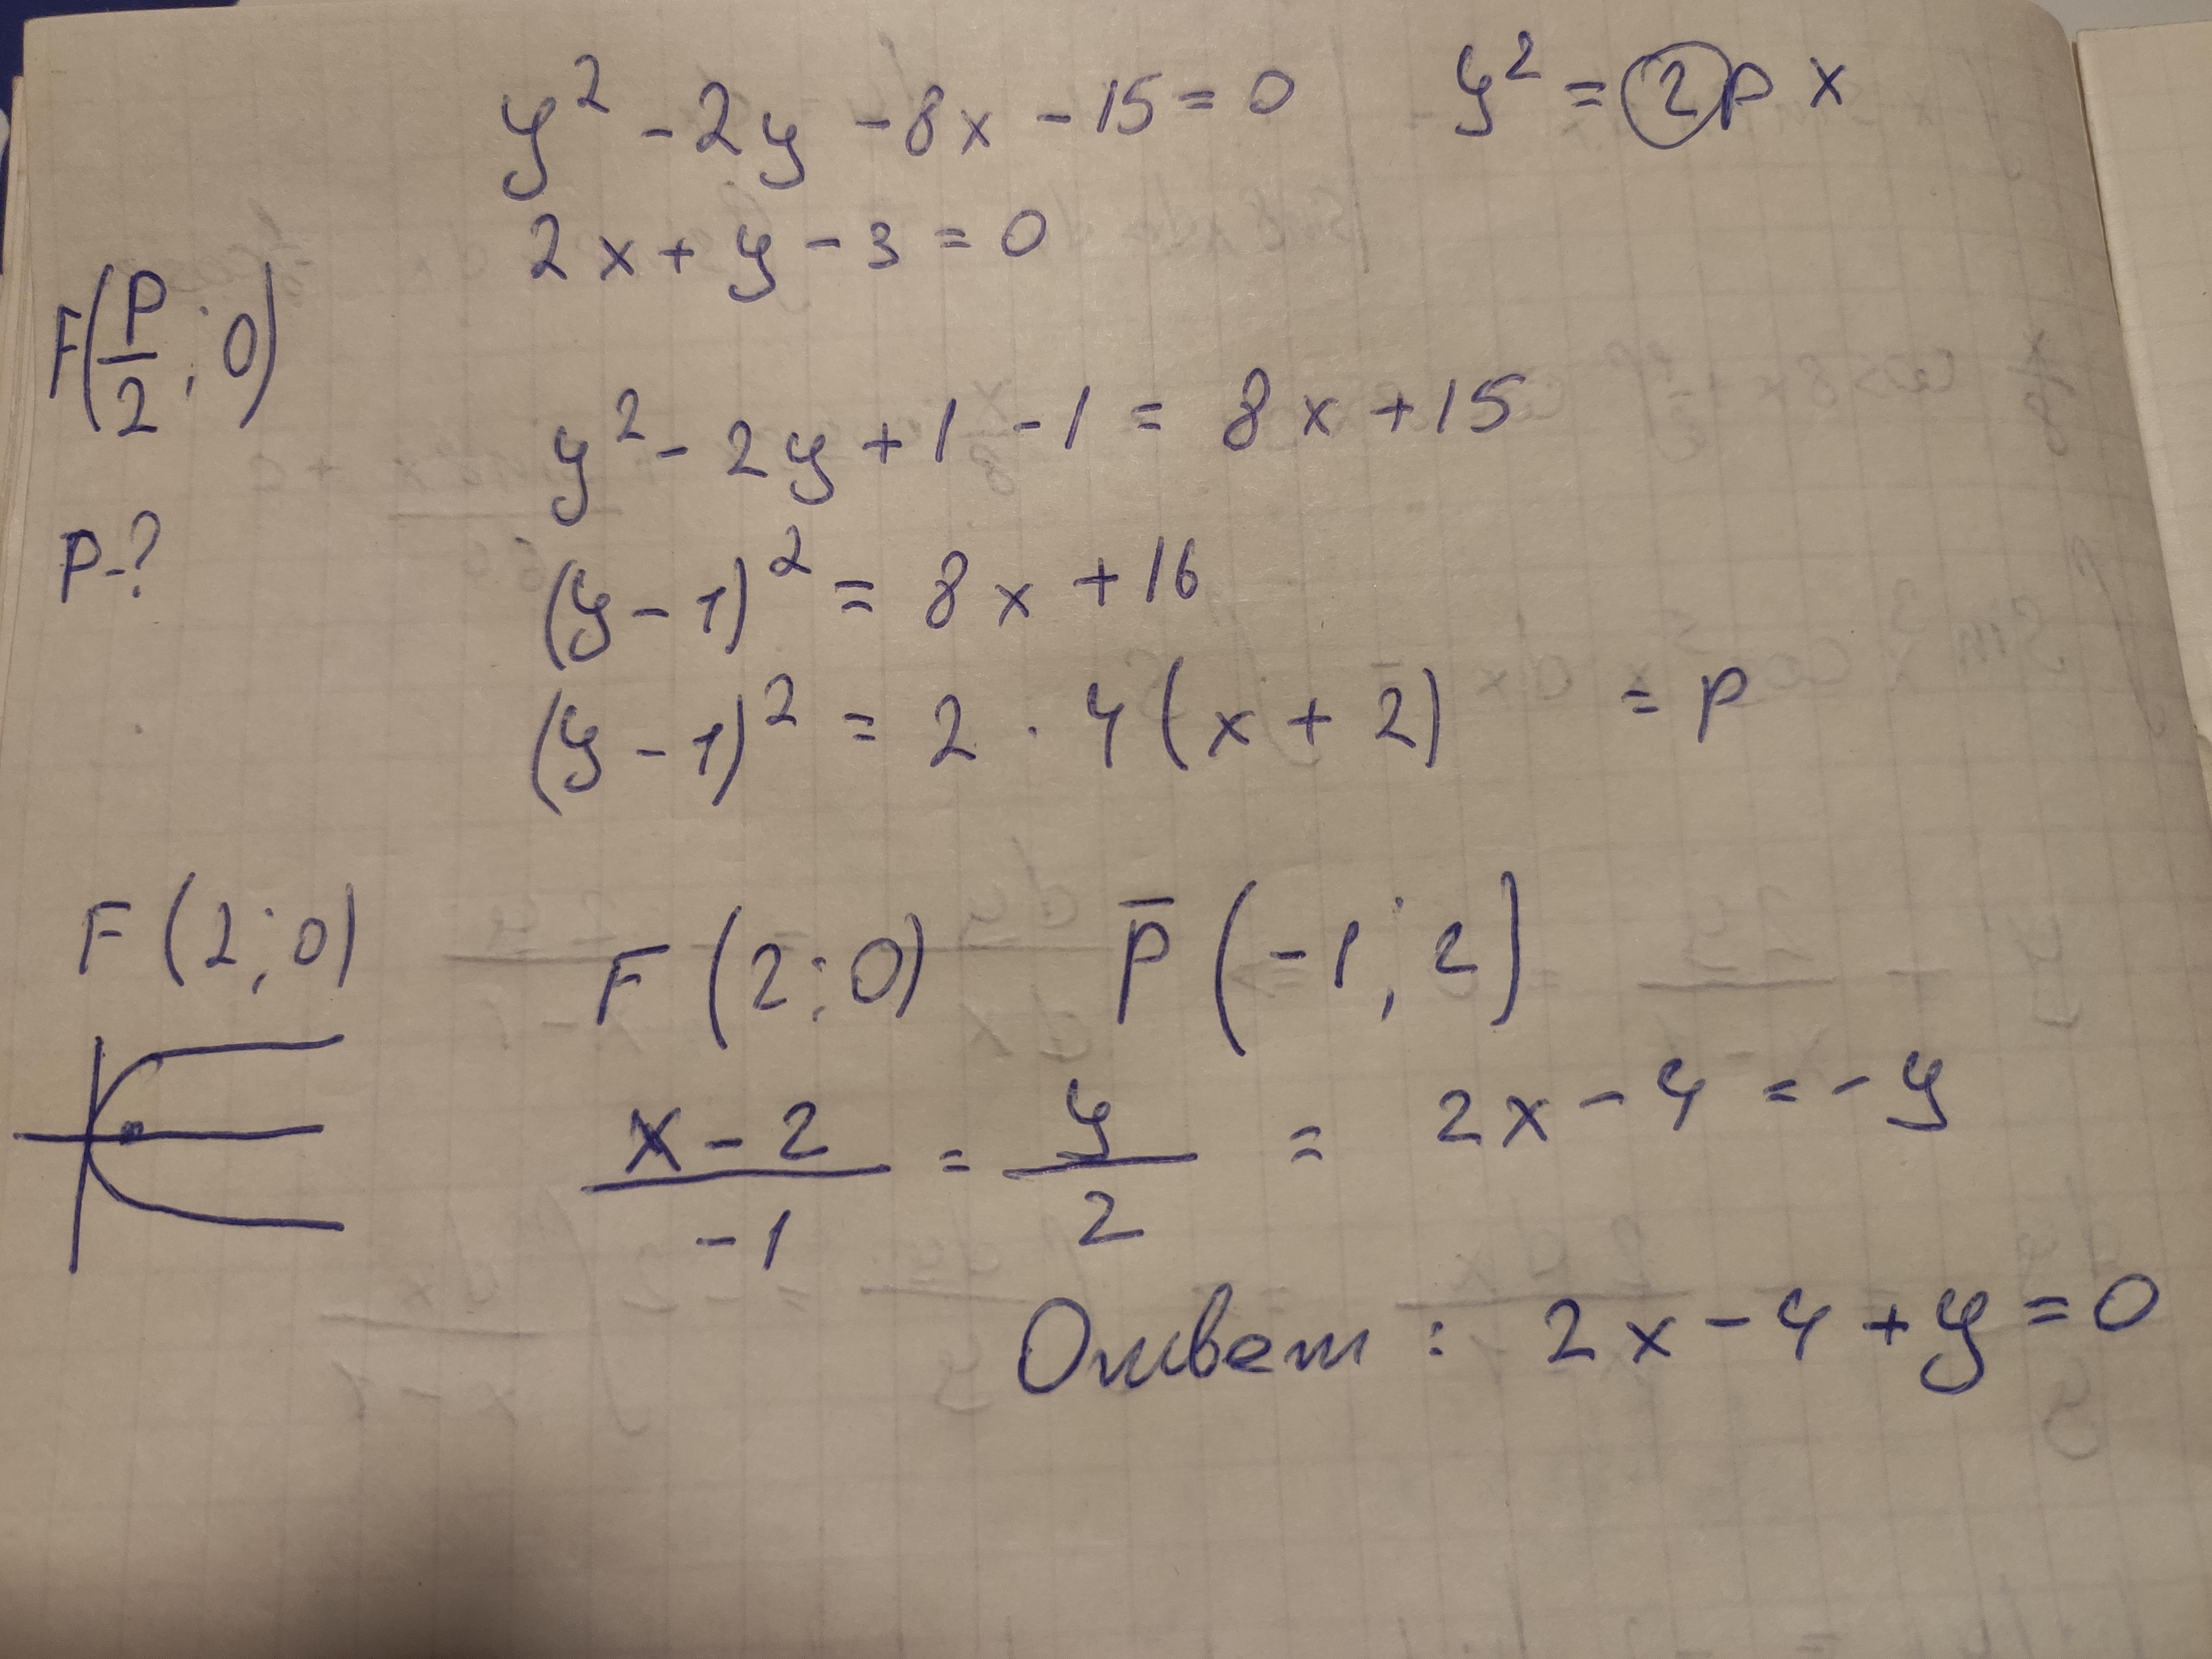 y² - 2y - 8x - 15 = 0 y² = 2px
2x + y - 3 = 0
F(p/2; 0)
y² - 2y + 1 - 1 = 8x + 15
p-?
(y - 1)² = 8x + 16
(y - 1)² = 2 · 4(x + 2) = p
F(2; 0) F(2; 0) p̄(-1; 2)
(x - 2)/(-1) = y/2 = 2x - 4 = -y
Ответ: 2x - 4 + y = 0